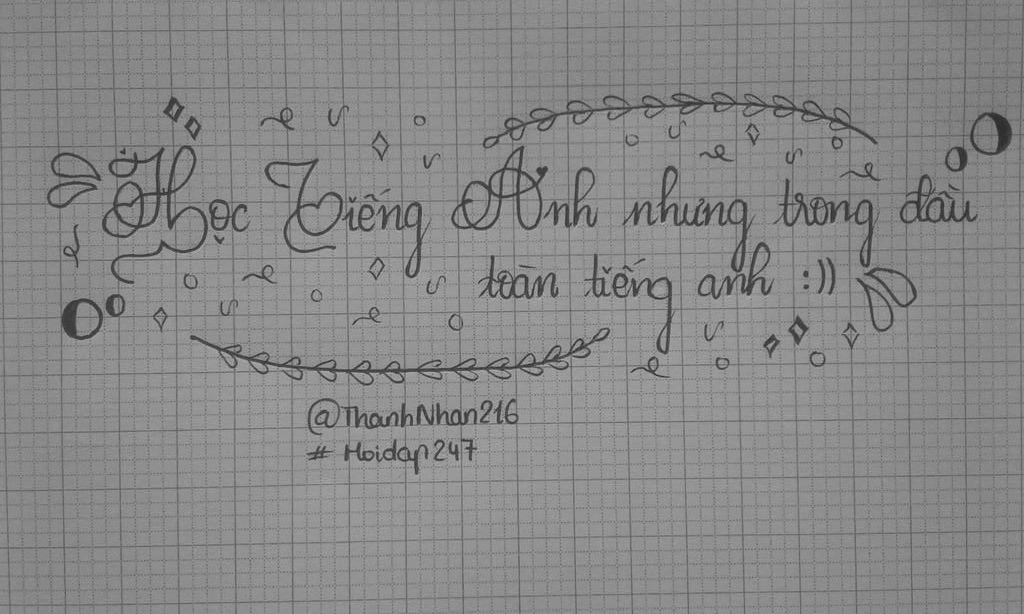 Học Tiếng Anh nhưng trong đầu
toàn tiếng anh :))
@ThanhNhan216
# Hoidap247